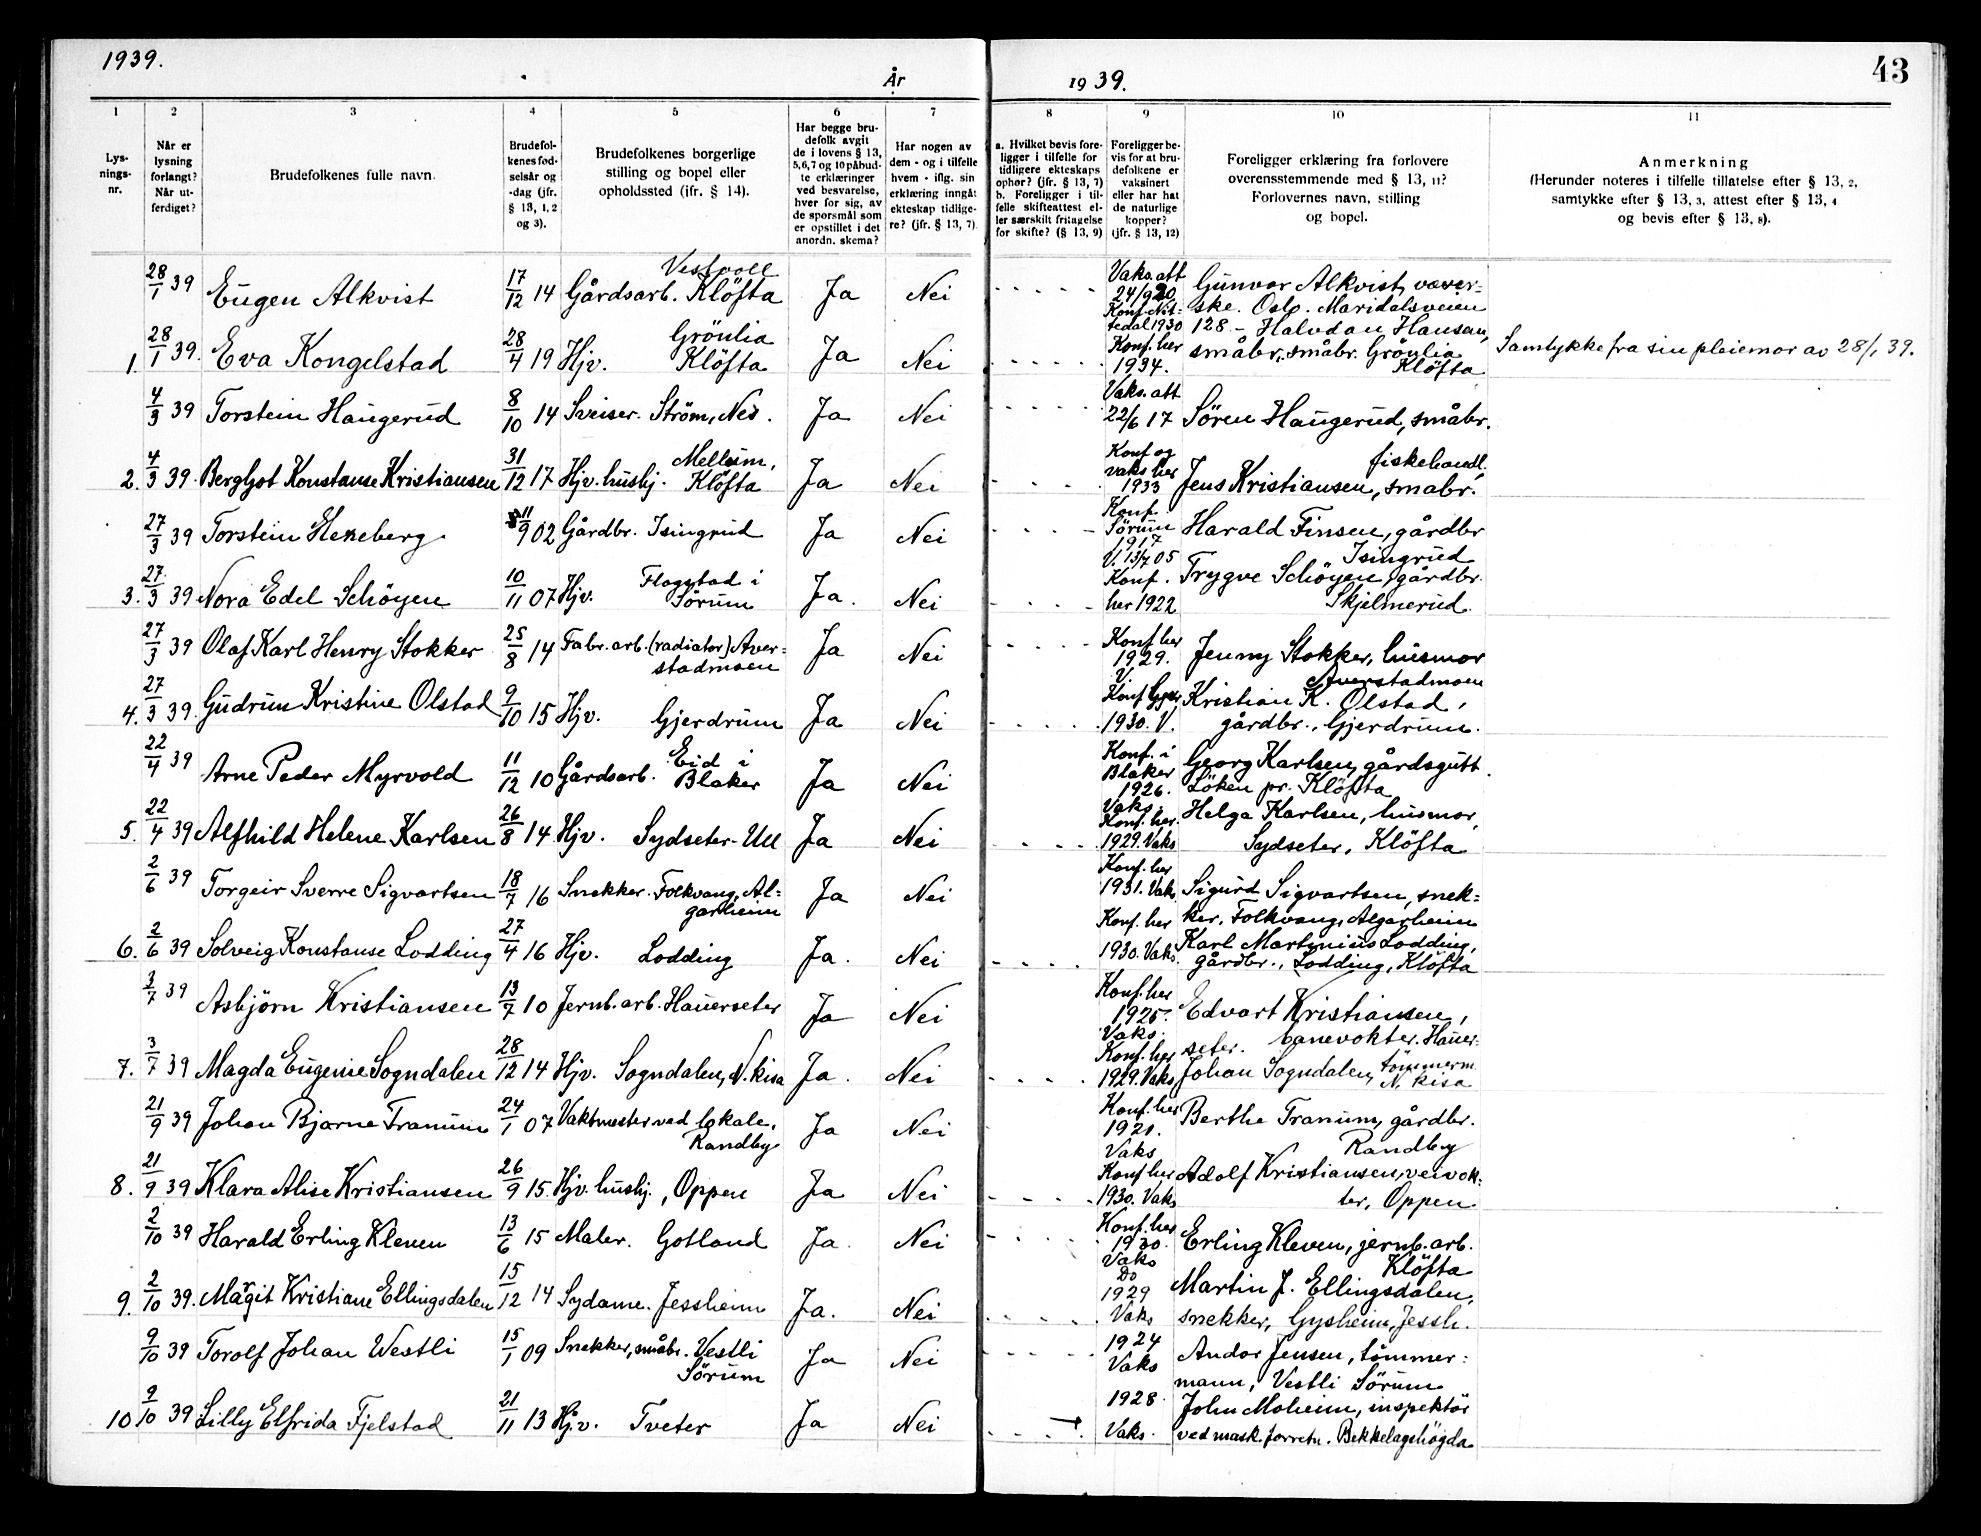 1939.
År
1939.
43
1
2
3
4
5
6
7
8
9
10
11
Lys-
nings-
nr.
Når er
lysning
forlangt?
Når ut-
ferdiget?
Brudefolkenes fulle navn.
Brudefol-
kenes fød-
selsår og
-dag (jfr.
§ 13, 1, 2
og 3).
Brudefolkenes borgerlige
stilling og bopel eller
opholdssted (jfr. § 14).
Har begge bru-
defolk avgit
de i lovens § 13,
5,6,7 og 10 påbud-
te erklæringer
ved besvarelse,
hver for sig, av
de spørsmål som
er opstillet i det
anordn. skema?
Har nogen av
dem - og i tilfelle
hvem - iflg. sin
erklæring inngåt
ekteskap tidlige-
re? (jfr. § 13, 7)
a. Hvilket bevis fore-
ligger i tilfelle for
tidligere ekteskaps
ophør? (jfr. § 13, 7)
b. Foreligger i til-
felle skifteattest el-
ler særskilt fritagelse
for skifte? (§ 13, 9)
Foreligger be-
vis for at bru-
defolkene er
vaksinert
eller har hat
de naturlige
kopper?
(jfr. § 13, 12)
Foreligger erklæring fra forlovere
overensstemmende med § 13, 11?
Forlovernes navn, stilling
og bopel.
Anmerkning
(Herunder noteres i tilfelle tillatelse efter § 13, 2,
samtykke efter § 13, 3, attest efter § 13, 4
og bevis efter § 13, 8).
28/1 39 Eugen Alkvist 17/12 14 Gårdsarb. Vestvoll Klöfta Ja Nei
Vaks. att 24/9 20 Konf. Nit-tedal 1930
Gunvor Alkvist, væver-
ske. Oslo. Maridalsveien
128. - Halvdan Hansen,
1. 28/1 39. Eva Kongelstad 28/4 19 Hjv. Grönlia Klöfta Ja Nei
Konf. her 1934.
småbr., småbr. Grönlia
Klöfta
Samtykke fra sin pleiemor av 28/1 39.
4/3 39 Torstein Haugerud 8/10 14 Sveiser. Ström, Nes. Ja Nei
Vaks. att 22/6 17 Sören Haugerud, småbr.
2. 4/3 39. Bergljot Konstanse Kristiansen 31/12 17 Hjv. hushj. Mellum, Klöfta Ja Nei
Konf og vaks her 1933
fiskehandl.
Jens Kristiansen, småbr.
27/3 39 Torstein Hekeberg. 11/9 02 Gårdbr. Isingrud Ja Nei
Konf. Sörum 1917 V. 13/7 05
Harald Finsen, gårdbr
Isingrud
3. 27/3 39 Nora Edel Schöyen 10/11 07 Hjv. Flogstad i Sörum Ja. Nei
Konf. her 1922
Trygve Schöyen, gårdbr.
Skjelmerud.
27/3 39 Olaf Karl Henry Stokker 25/8 14 Fabr. arb. (radiator) Aver-
stadmoen Ja Nei
Konf her 1929. V.
Jenny Stokker, husmor
Averstadmoen
4. 27/3 39. Gudrun Kristine Olstad 9/10 15 Hjv. Gjerdrum Ja Nei
Konf Gjer 1930. V.
Kristian K. Olstad,
gårdbr., Gjerdrum.
22/4 39 Arne Peder Myrvold 11/12 10 Gårdsarb. Eid i Blaker Ja Nei
Konf. i Blaker 1926. Vaks.
Georg Karlsen, gårdsgutt.
Löken pr. Klöfta
5. 22/4 39 Alfhild Helene Karlsen 26/8 14 Hjv. Sydseter-Ull Ja Nei
Konf. her. 1929. Vaks
Helga Karlsen, husmor,
Sydseter, Klöfta
2/6 39 Torgeir Sverre Sigvartsen 18/7 16 Snekker. Folkvang, Al-
garheim Ja Nei
Konf. her 1931. Vaks
Sigurd Sigvartsen, snek-
ker, Folkvang, Algarheim
6. 2/6 39 Solveig Konstanse Lodding 27/4 16 Hjv. Lodding Ja. Nei
Konf. her 1930. Vaks.
Karl Martinius Lodding,
gårdbr., Lodding, Klöfta
3/7 39 Asbjörn Kristiansen 13/7 10 Jernb. arb. Hauerseter Ja Nei
Konf. her 1925. Vaks.
Edvart Kristiansen,
banevokter. Hauer-
seter.
7. 3/7 39 Magda Eugenie Sogndalen 28/12 14 Hjv. Sogndalen, N. kisa Ja. Nei
Konf. her 1929. Vaks
Johan Sogndalen, tömmerm
N. kisa
21/9 39 Johan Bjarne Tranum 24/1 07 Vaktmester ved lokale,
Randby Ja Nei
Konf. her 1921. Vaks
Berthe Tranum, gårdbr.
Randby
8. 21/9 39 Klara Alise Kristiansen 26/9 15. Hjv. hushj., Oppen Ja Nei
Konf her 1930. Vaks
Adolf Kristiansen, veivok-
ter, Oppen
2/10 39 Harald Erling Kleven 13/6 15 Maler. Gotland Ja. Nei
Konf. her 1930. Vaks
Erling Kleven, jernb. arb.
Klöfta
9. 2/10 39. Margit Kristiane Ellingsdalen 15/12 14 Sydame. Jessheim Ja. Nei
Do 1929 Vaks
Martin J. Ellingsdalen,
snekker, Gysheim, Jessh.
9/10 39 Torolf Johan Westli 15/1 09 Snekker, småbr. Vestli
Sörum Ja Nei
1924 Vaks
Andor Jensen, tömmer-
mann, Vestli Sörum
10 9/10 39 Lilly Elfrida Fjelstad 21/11 13 Hjv. Tveter Ja Nei
1928. Vaks.
John Moheim, inspektör
ved mask. forretn. Bekkelagshögda